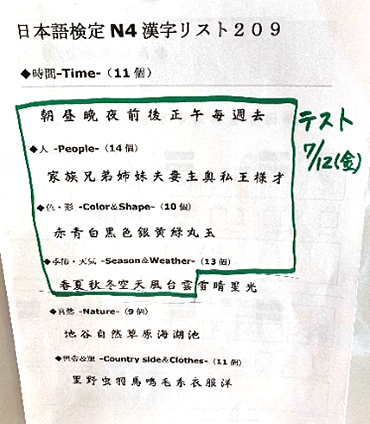 日本語検定 N4 漢字リスト２０９
◆時間-Time-（11 個）
朝昼晩夜前後正午毎週去
テスト
7/12(金)
◆人 -People-（14 個）
家族兄弟姉妹夫妻主奥私王様才
◆色・形 -Color&Shape-（10 個）
赤青白黒色銀黄緑丸玉
◆季節・天気 -Season&Weather-（13 個）
春夏秋冬空天風台雲雪晴星光
◆自然 -Nature-（9 個）
地谷自然草原海湖池
-Country side&Clothes-（11 個）
里野虫羽馬鳴毛糸衣服洋